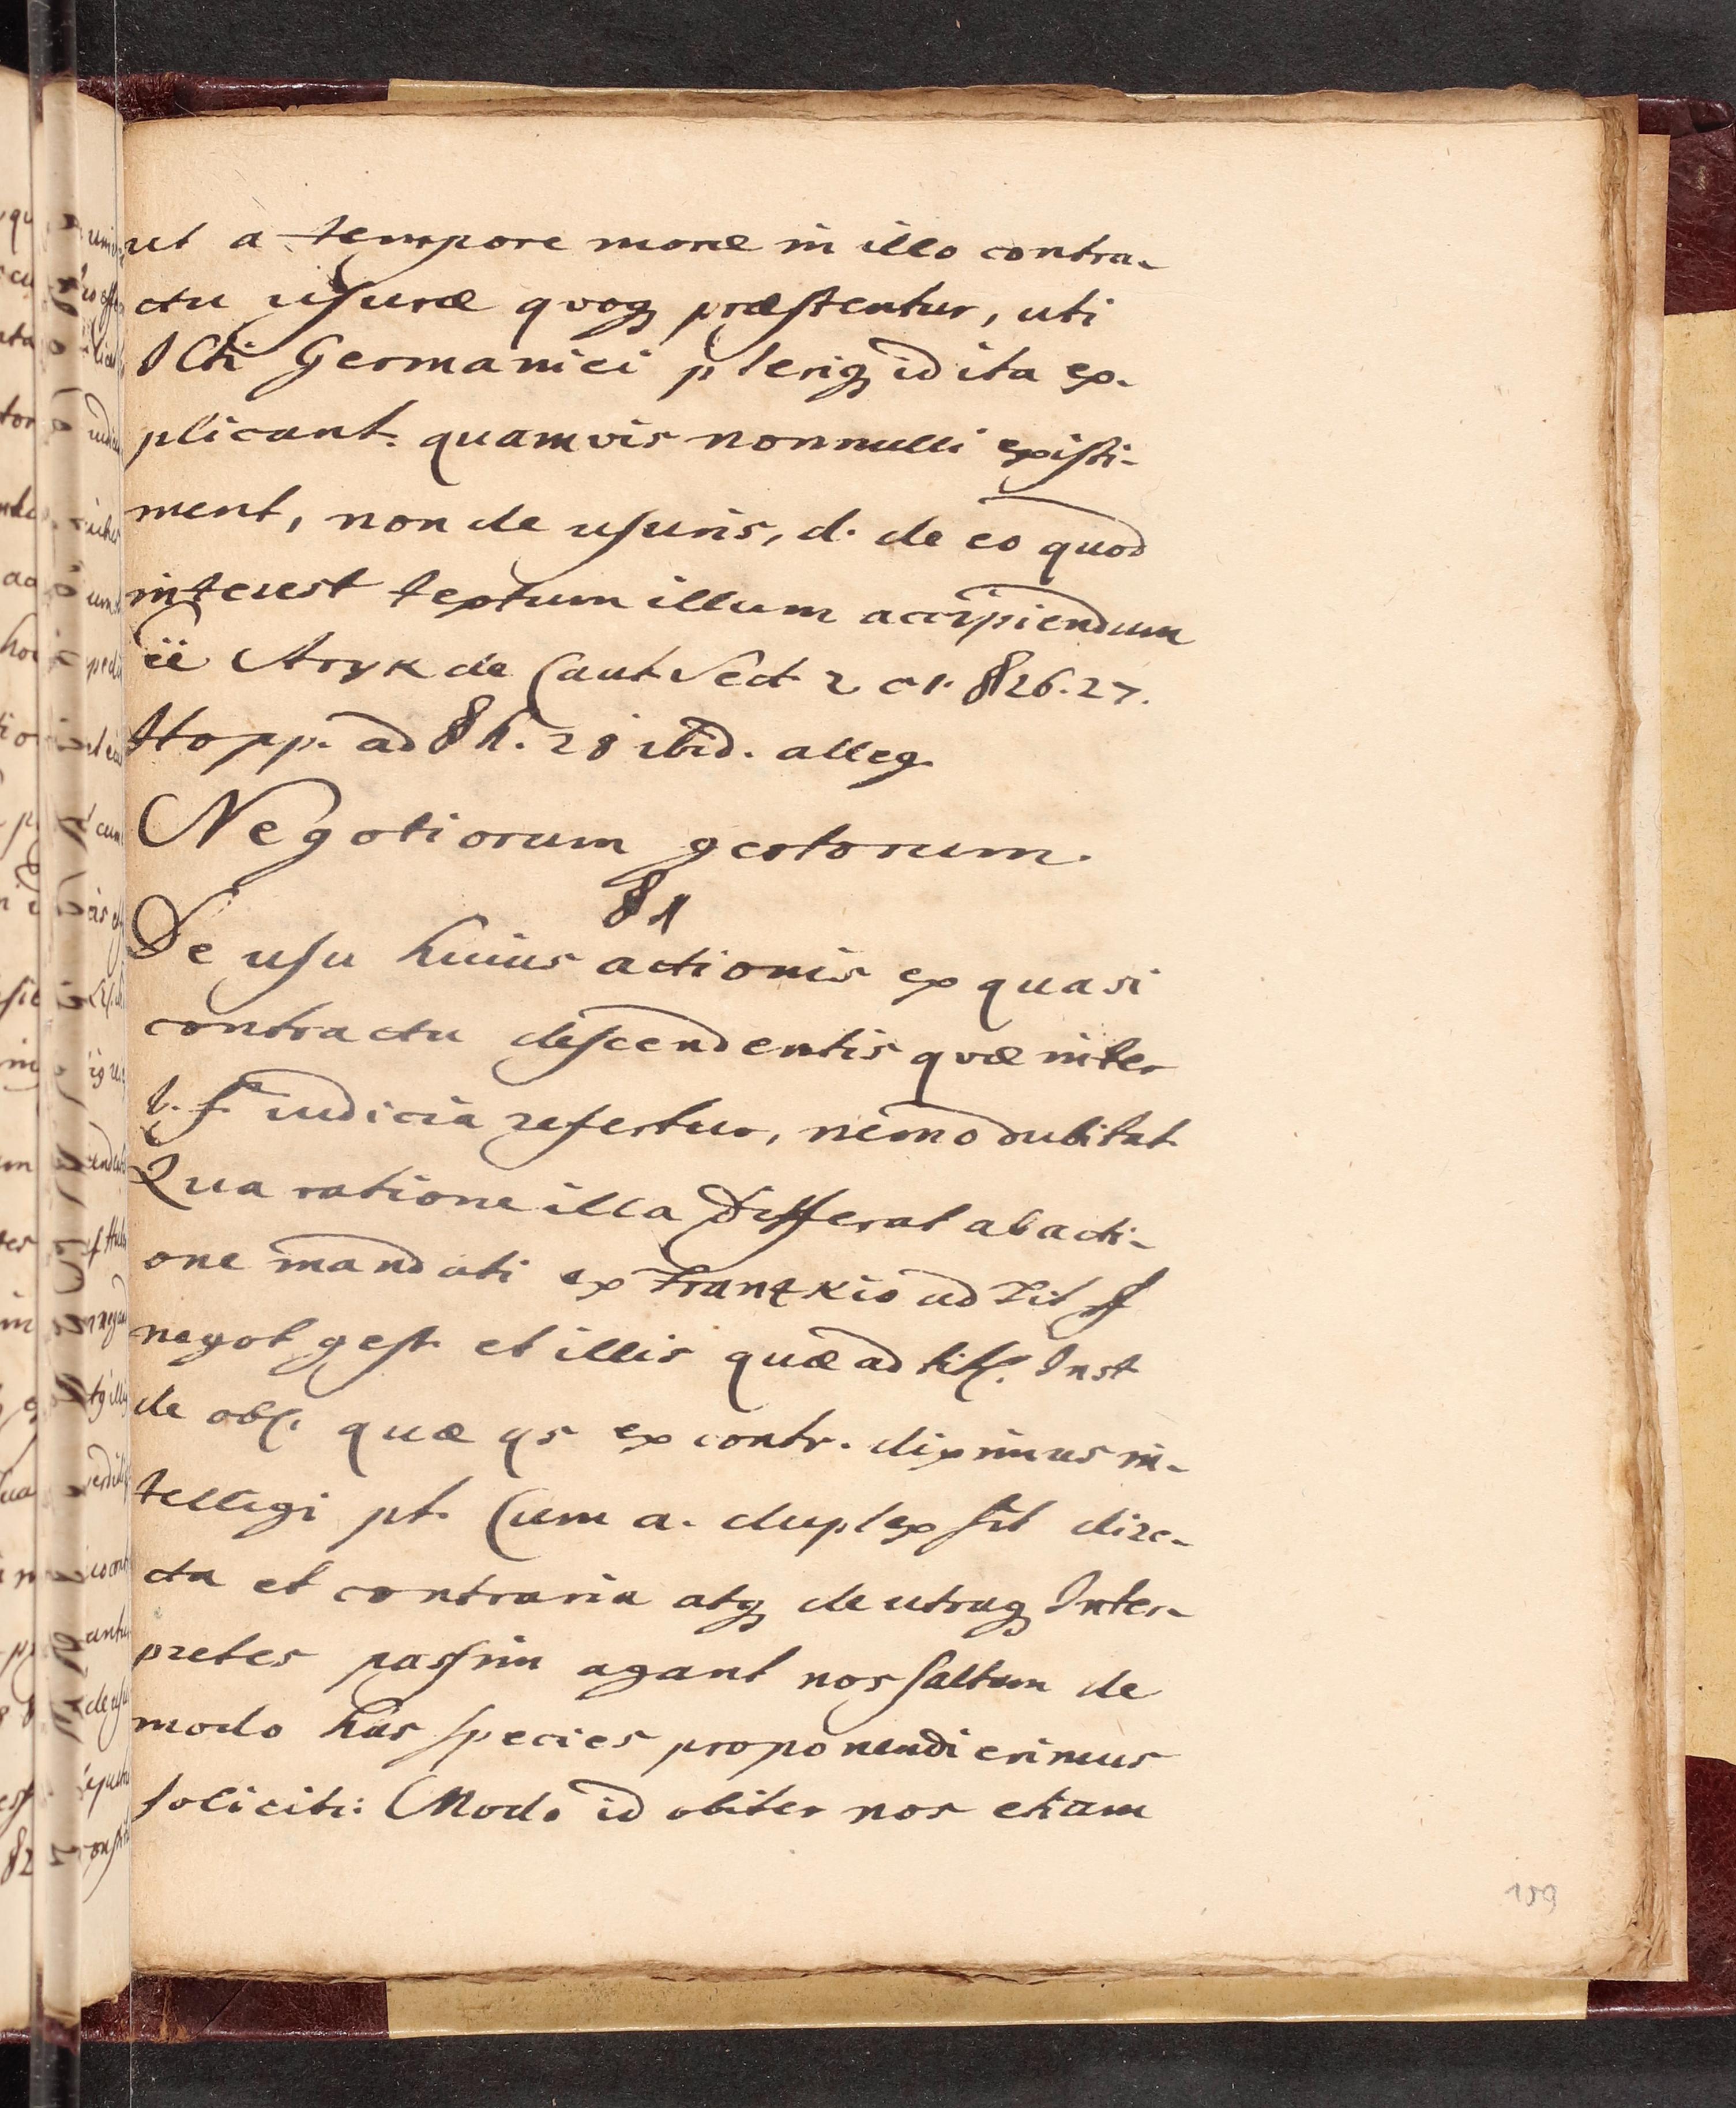 ut a tempore moræ in illo contra-
ctu usuræ qvoq præstentur, uti
ICti Germanici pleriq id ita ex-
plicant. quamvis nonnulli existi-
ment, non de usuris, d. de eo quod
interest textum illum accipiendum
ee Stryk de Caut Sect 2 c 1. § 26. 27.
Hopp. ad § h. 28 ibid. alleg
Negotiorum gestorum.
§ 1
De usu huius actionis ex quasi
contractu descendentis qvæ inter
b. f. iudicia refertur, nemo dubitat
Qua ratione illa differat ab acti-
one mandati ex Frantzkio ad Tit ff
negot gest. et illis quæ ad tit. Inst
de obl. quæ qs ex contr. diximus in-
telligi pt. Cum a. duplex sit dire-
cta et contraria atq de utraq Inter-
pretes passim agant nos saltem de
modo has species proponendi erimus
soliciti: Modo id obiter nos etiam
159